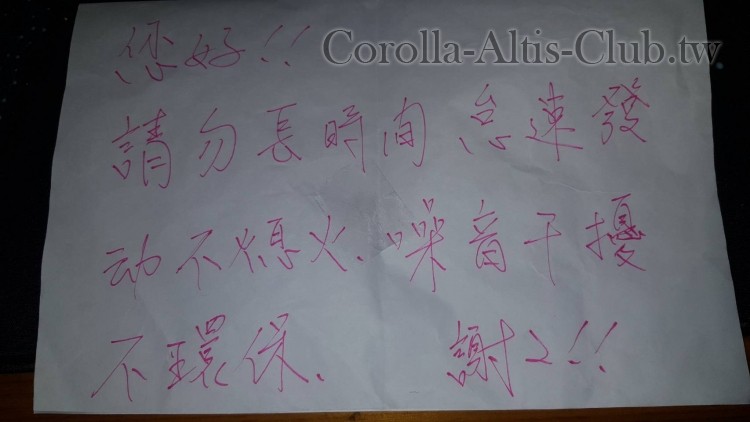 Corolla-Altis-Club.tw
您好!!
請勿長時间怠速發
动不熄火、噪音干擾
不環保、 謝2!!